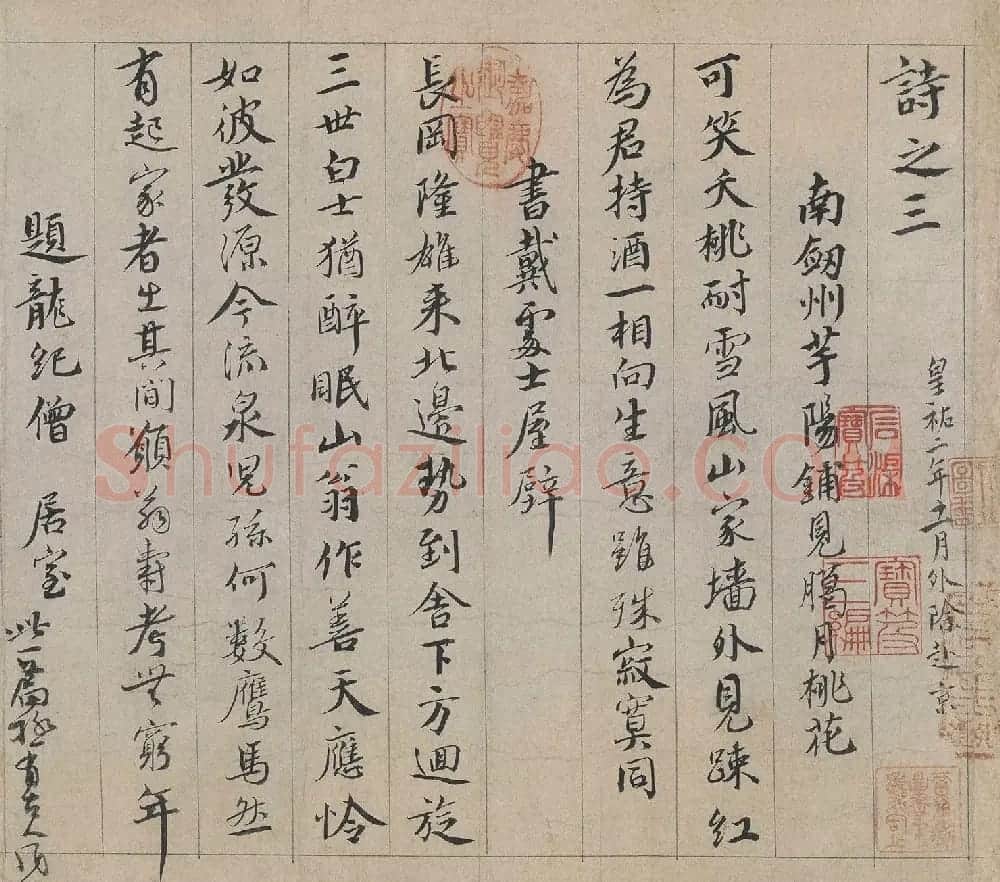 詩之三
皇祐二年十一月外除赴京
南劒州芋陽鋪見臘月桃花
可笑夭桃耐雪風山家墻外見踈紅
為君持酒一相向生意雖殊寂寞同
書戴處士屋壁
長岡隆雄来北邊勢到舍下方迴旋
三世白士猶醉眠山翁作善天應怜
如彼發源今流泉児孫何數鷹馬然
有起家者出其間願翁壽考無窮年
題龍紀僧居室
此一篇極有古人風
嘉慶御覽之寶
石渠寶笈
寶笈三編
Shufaziliao.co